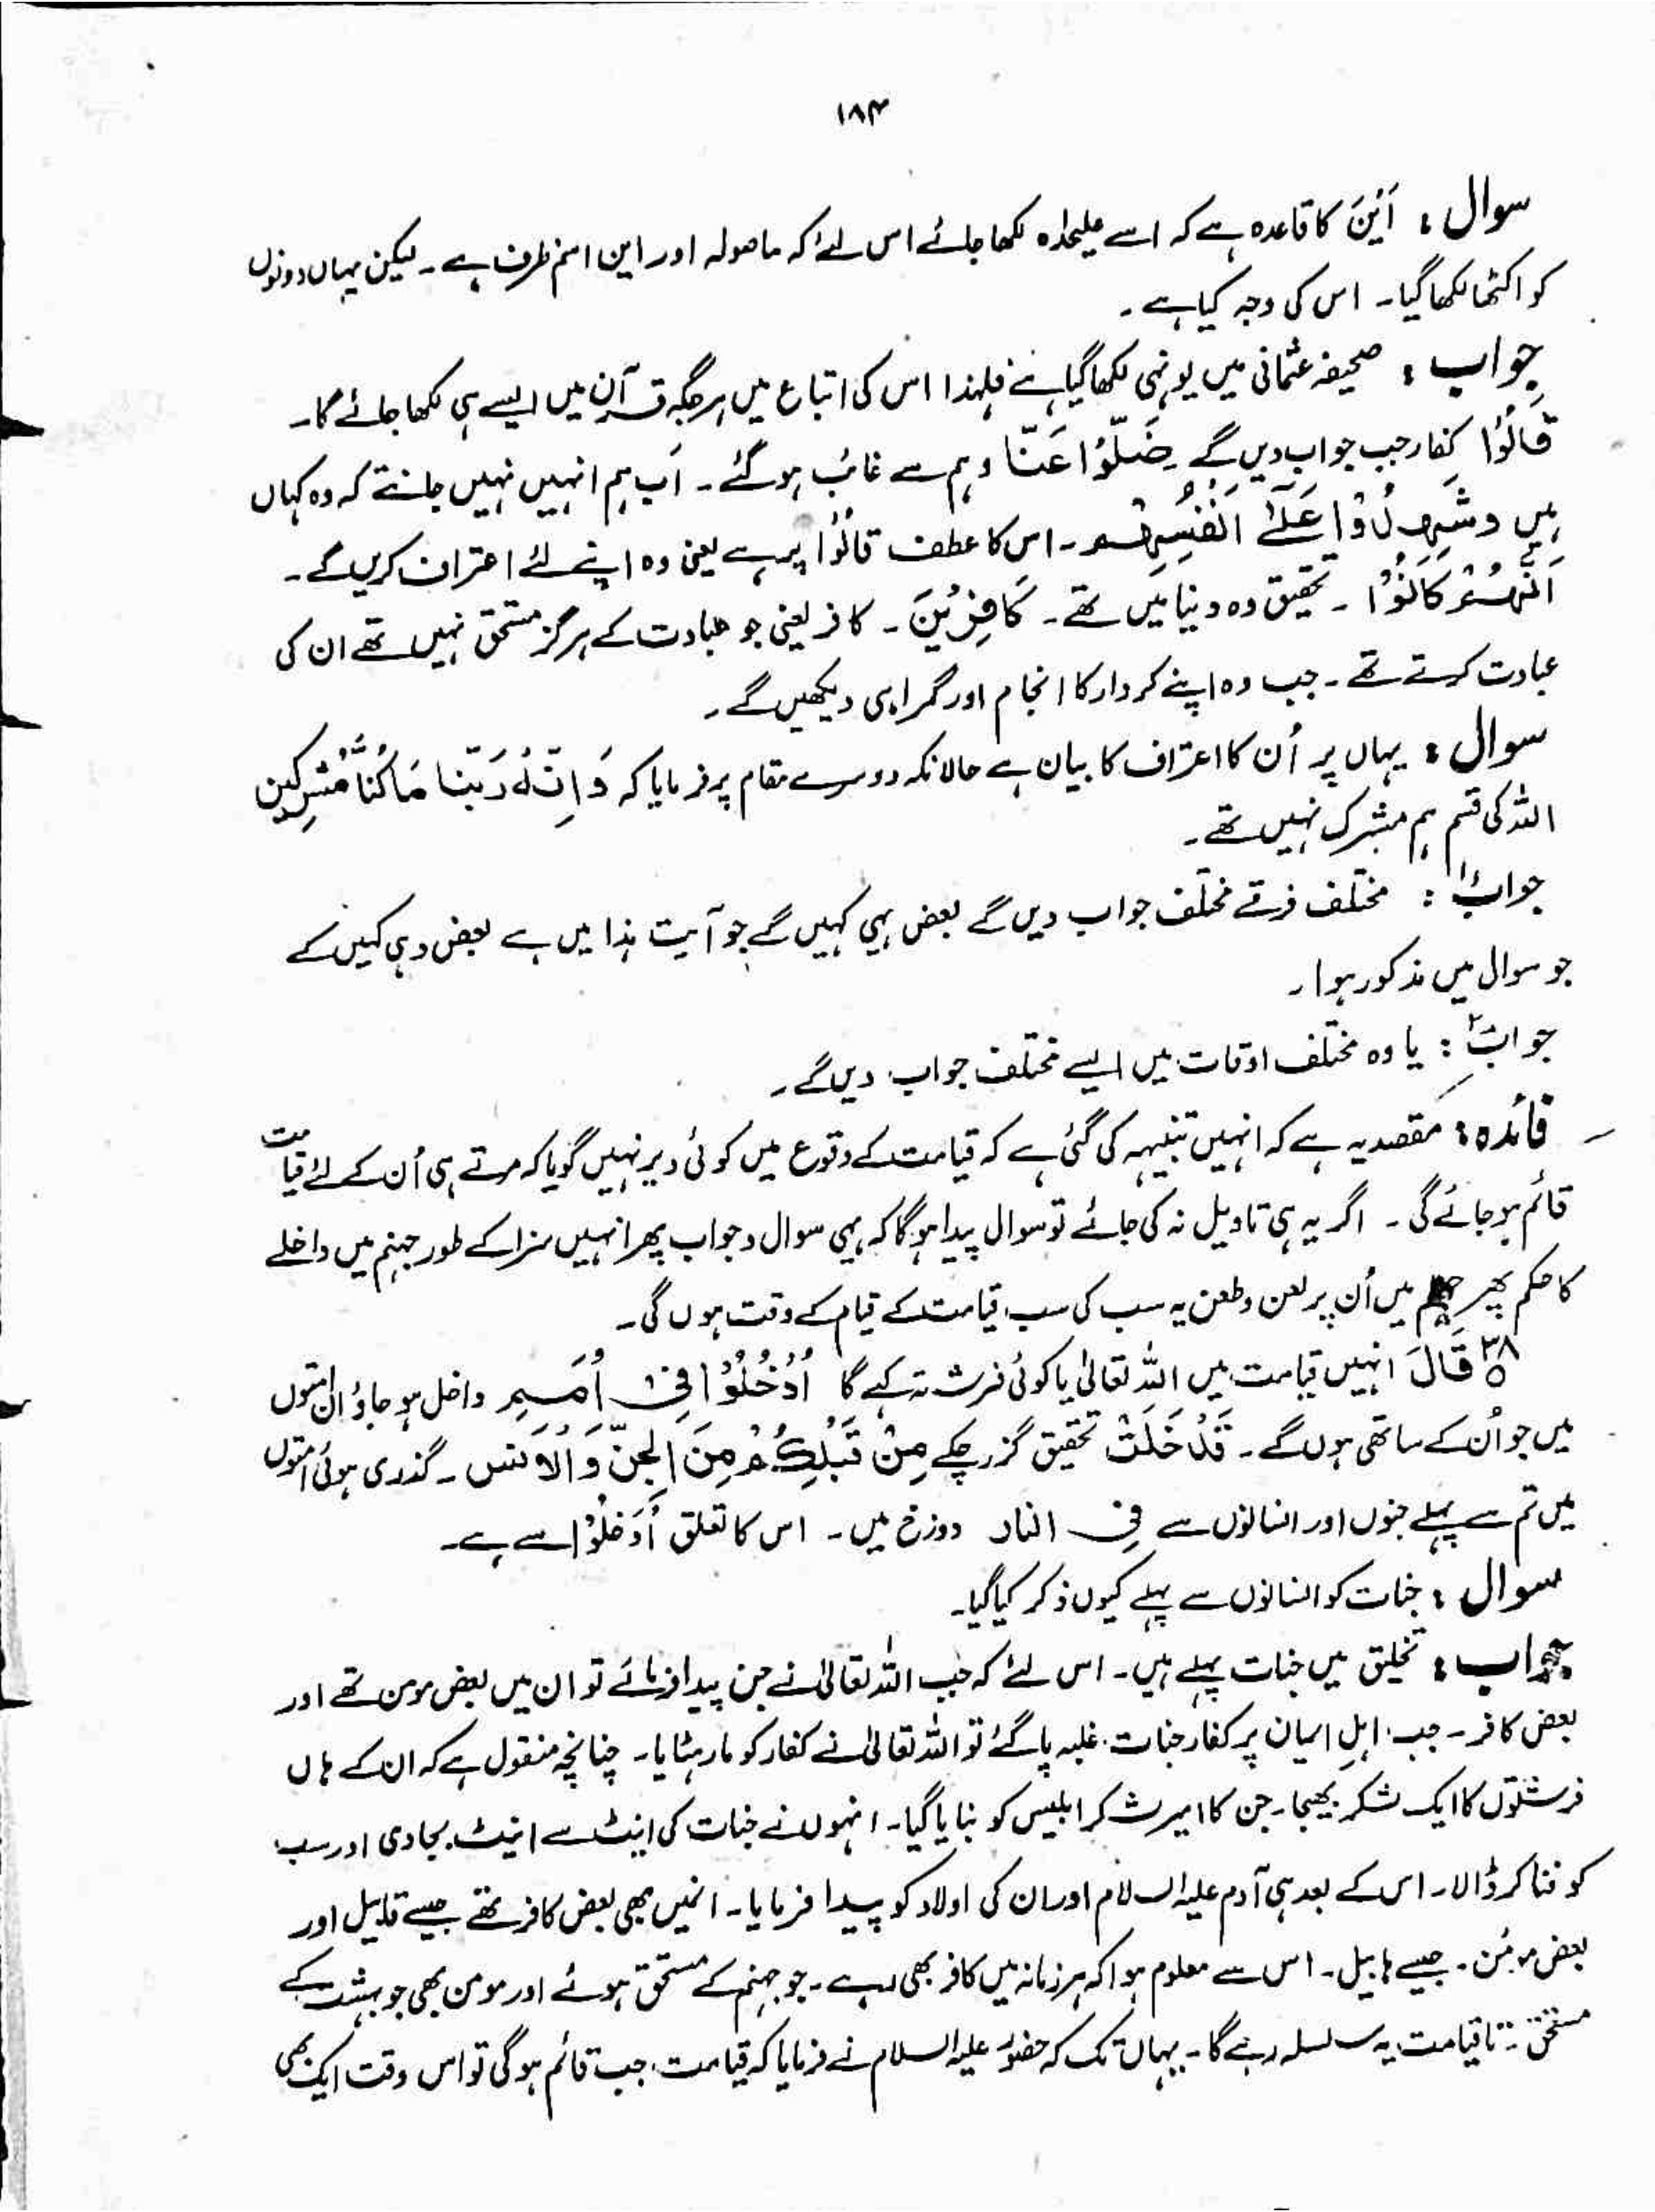 ۱۸۴
سوال : اَیْنَ کا قاعدہ ہے کہ اسے علیحدہ لکھا جائے اس لئے کہ ما صولہ اور این اسم ظرف ہے ۔ لیکن یہاں دونوں
کو اکٹھا لکھا گیا ۔ اس کی وجہ کیا ہے ۔
جواب : صحیفہ عثمانی میں یونہی لکھا گیا ہے فلہٰذا اس کی اتباع میں ہر جگہ قرآن میں ایسے ہی لکھا جائے گا ۔
قَالُوْا کفار جب جواب دیں گے ضَلُّوْا عَنَّا وہم سے غائب ہو گئے ۔ اَب ہم انہیں نہیں جانتے کہ وہ کہاں
ہیں وشَہِدُوْا عَلٰۤی اَنْفُسِہِمْ ۔ اس کا عطف قَالُوْا پر ہے یعنی وہ اپنے لئے اعتراف کریں گے ۔
اَنَّہُمْ کَانُوْا ۔ تحقیق وہ دنیا میں تھے ۔ کَافِرِیْنَ ۔ کافر یعنی جو عبادت کے ہرگز مستحق نہیں تھے ان کی
عبادت کرتے تھے ۔ جب وہ اپنے کردار کا انجام اور گمراہی دیکھیں گے ۔
سوال : یہاں پر اُن کا اعتراف کا بیان ہے حالانکہ دوسرے مقام پر فرمایا کہ وَاللہِ رَبِّنَا مَا کُنَّا مُشْرِکِین
اللہ کی قسم ہم مشرک نہیں تھے ۔
جواب۱ : مختلف فرقے مختلف جواب دیں گے بعض یہی کہیں گے جو آیت ہذا میں ہے بعض وہی کہیں گے
جو سوال میں مذکور ہوا ۔
جواب۲ : یا وہ مختلف اوقات میں ایسے مختلف جواب دیں گے ۔
فائدہ : مقصد یہ ہے کہ انہیں تنبیہہ کی گئی ہے کہ قیامت کے وقوع میں کوئی دیر نہیں گویا کہ مرتے ہی اُن کے لئے قیامت
قائم ہو جائے گی ۔ اگر یہ ہی تاویل نہ کی جائے تو سوال پیدا ہوگا کہ یہی سوال و جواب پھر انہیں سزا کے طور جہنم میں داخلے
کا حکم پھر جہنم میں اُن پر لعن وطعن یہ سب کی سب قیامت کے قیام کے وقت ہوں گی ۔
۳۸ قَالَ انہیں قیامت میں اللہ تعالیٰ یا کوئی فرشتہ کہے گا اُدْخُلُوْا فِیْۤ اُمَمٍ داخل ہو جاؤ ان امتوں
میں جو اُن کے ساتھی ہوں گے ۔ قَدْ خَلَتْ تحقیق گزر چکے مِنْ قَبْلِکُمْ مِنَ الْجِنِّ وَ الْاِنْسِ ۔ گذری ہوئی امتوں
میں تم سے پہلے جنوں اور انسانوں سے فِی النار دوزخ میں ۔ اس کا تعلق اُدْخُلُوْا سے ہے ۔
سوال : جنات کو انسانوں سے پہلے کیوں ذکر کیا گیا ۔
جواب : تخلیق میں جنات پہلے ہیں ۔ اس لئے کہ جب اللہ تعالیٰ نے جن پیدا فرمائے تو ان میں بعض مومن تھے اور
بعض کافر ۔ جب اہلِ ایمان پر کفار جنات غلبہ پا گئے تو اللہ تعالیٰ نے کفار کو مار ہٹایا ۔ چنانچہ منقول ہے کہ ان کے ہاں
فرشتوں کا ایک لشکر بھیجا ۔ جن کا امیر لشکر ابلیس کو بنایا گیا ۔ انہوں نے جنات کی اینٹ سے اینٹ بجا دی اور سب
کو فنا کر ڈالا ۔ اس کے بعد ہی آدم علیہ السلام اور ان کی اولاد کو پیدا فرمایا ۔ انمیں بھی بعض کافر تھے جیسے قابیل اور
بعض مومُن ۔ جیسے ہابیل ۔ اس سے معلوم ہوا کہ ہر زمانہ میں کافر بھی رہے ۔ جو جہنم کے مستحق ہوئے اور مومن بھی جو بہشت کے
مستحق ۔ تا قیامت یہ سلسلہ رہے گا ۔ یہاں تک کہ حضور علیہ السلام نے فرمایا کہ قیامت جب قائم ہوگی تو اس وقت ایک بھی